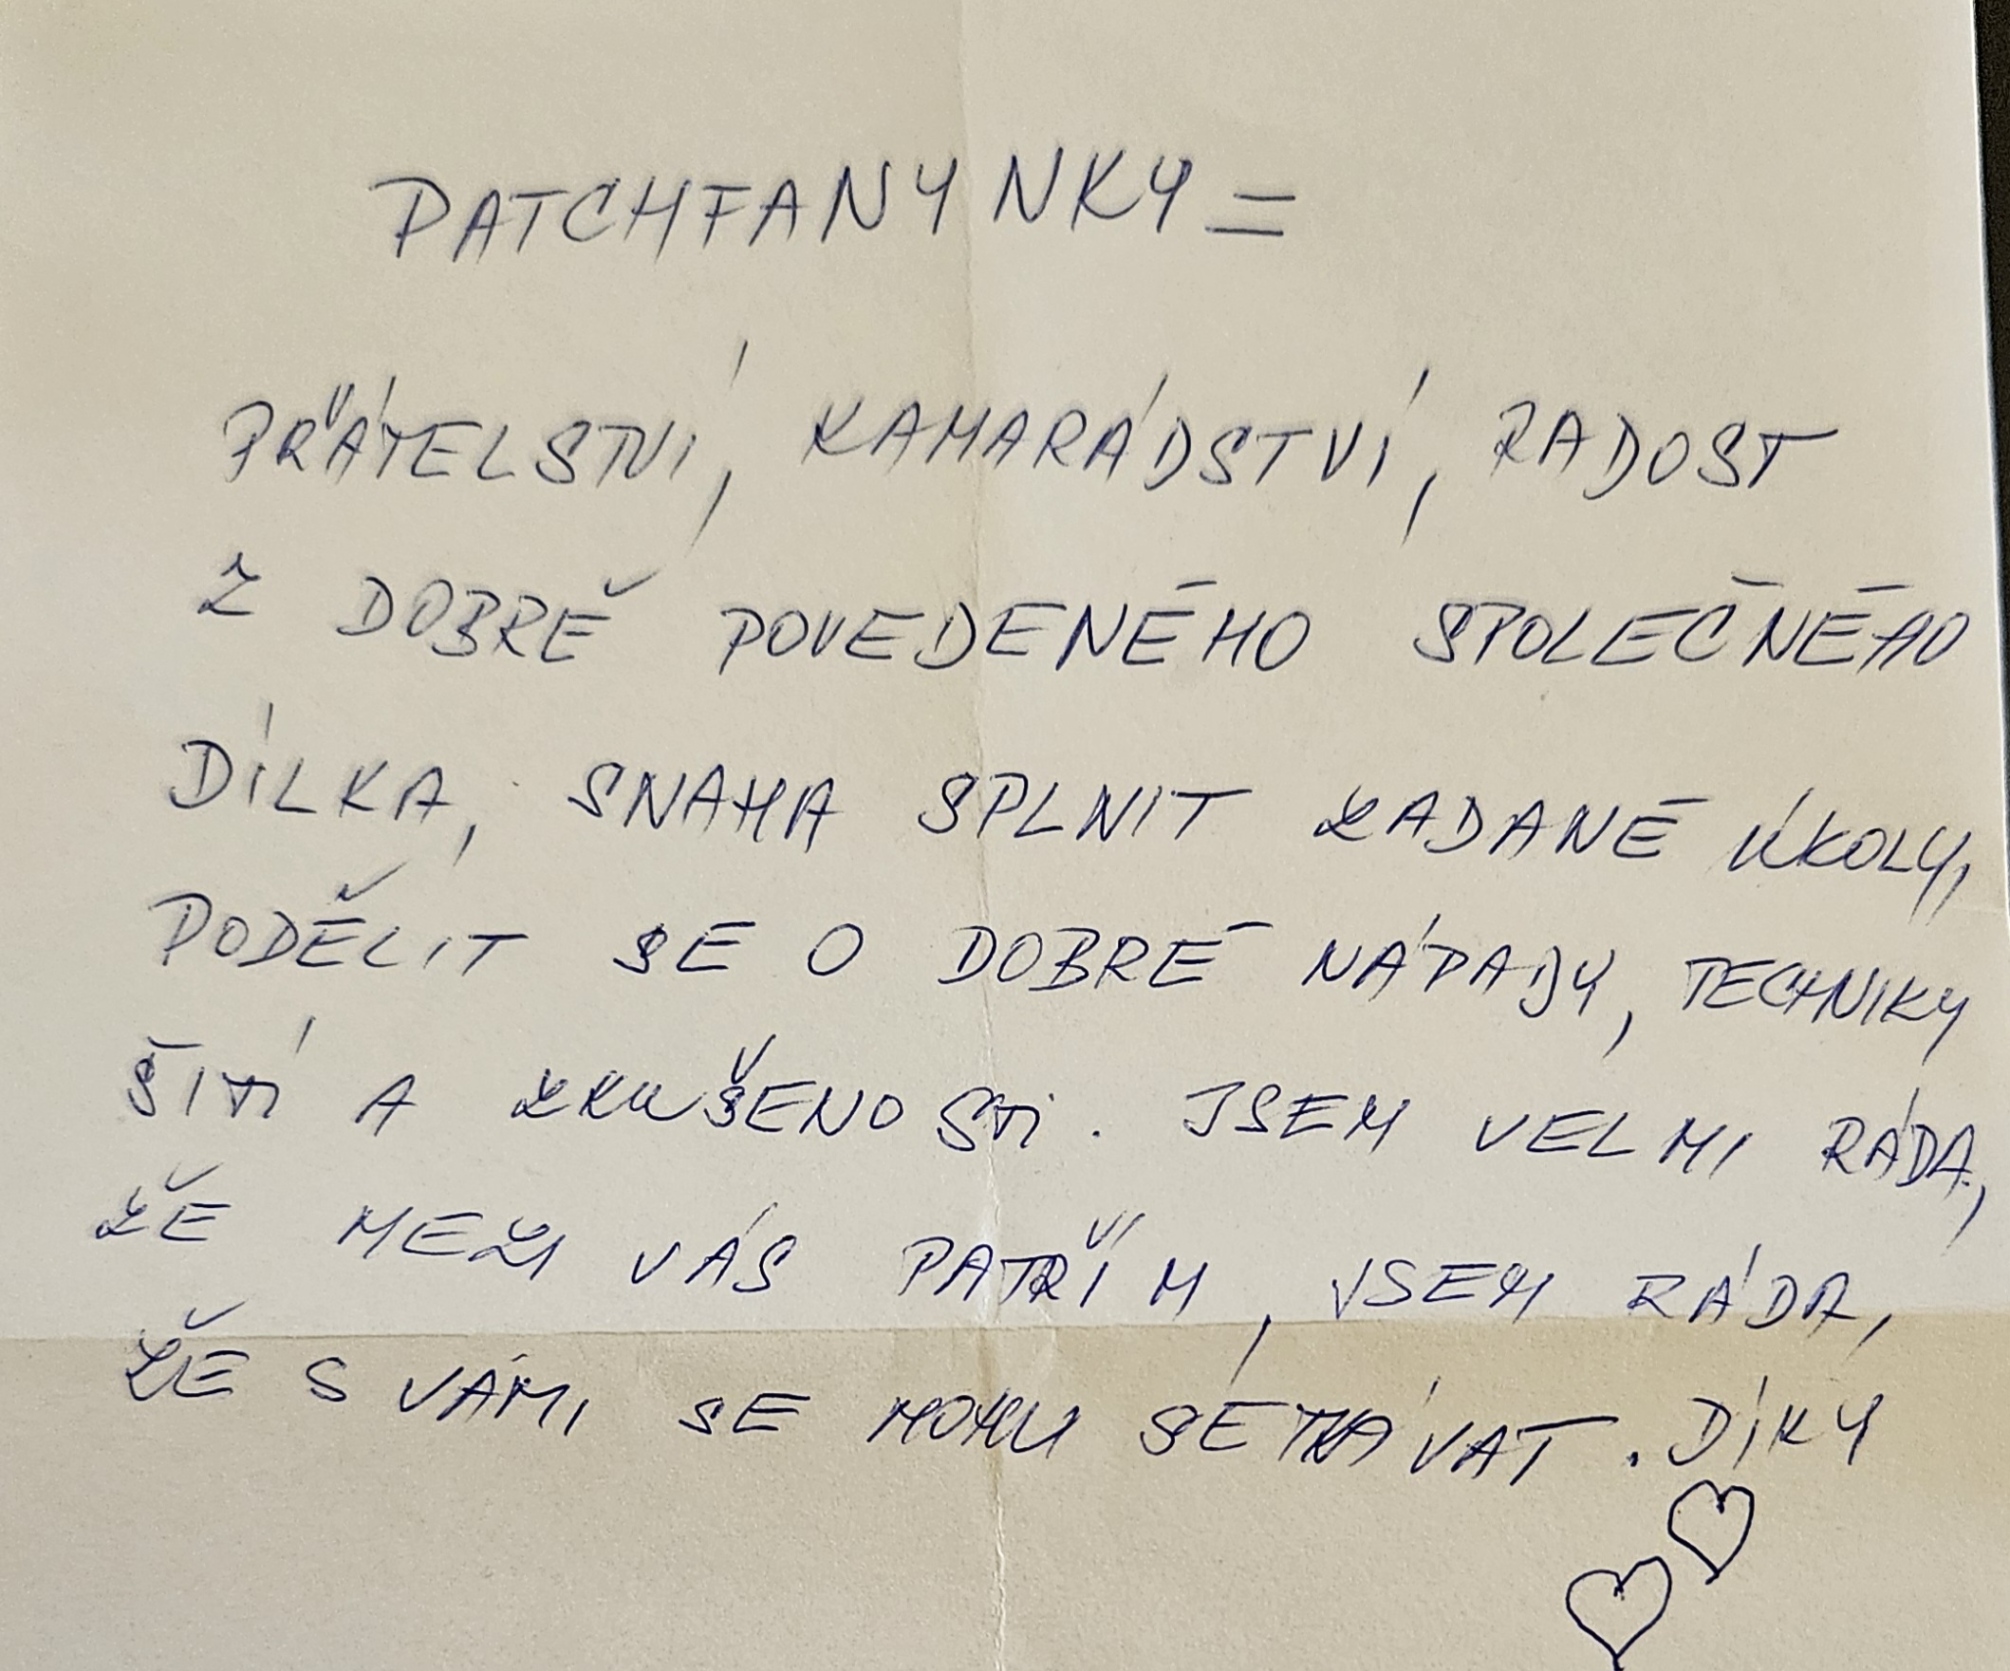 PATCHFANYNKY =
PŘÁTELSTVÍ, KAMARÁDSTVÍ, RADOST
Z DOBŘE POVEDENÉHO SPOLEČNÉHO
DÍLKA, SNAHA SPLNIT ZADANÉ ÚKOLY,
PODĚLIT SE O DOBRÉ NÁPADY, TECHNIKY
ŠITÍ A ZKUŠENOSTI. JSEM VELMI RÁDA,
ŽE MEZI VÁS PATŘÍM, JSEM RÁDA,
ŽE S VÁMI SE MOHU SETKÁVAT. DÍKY